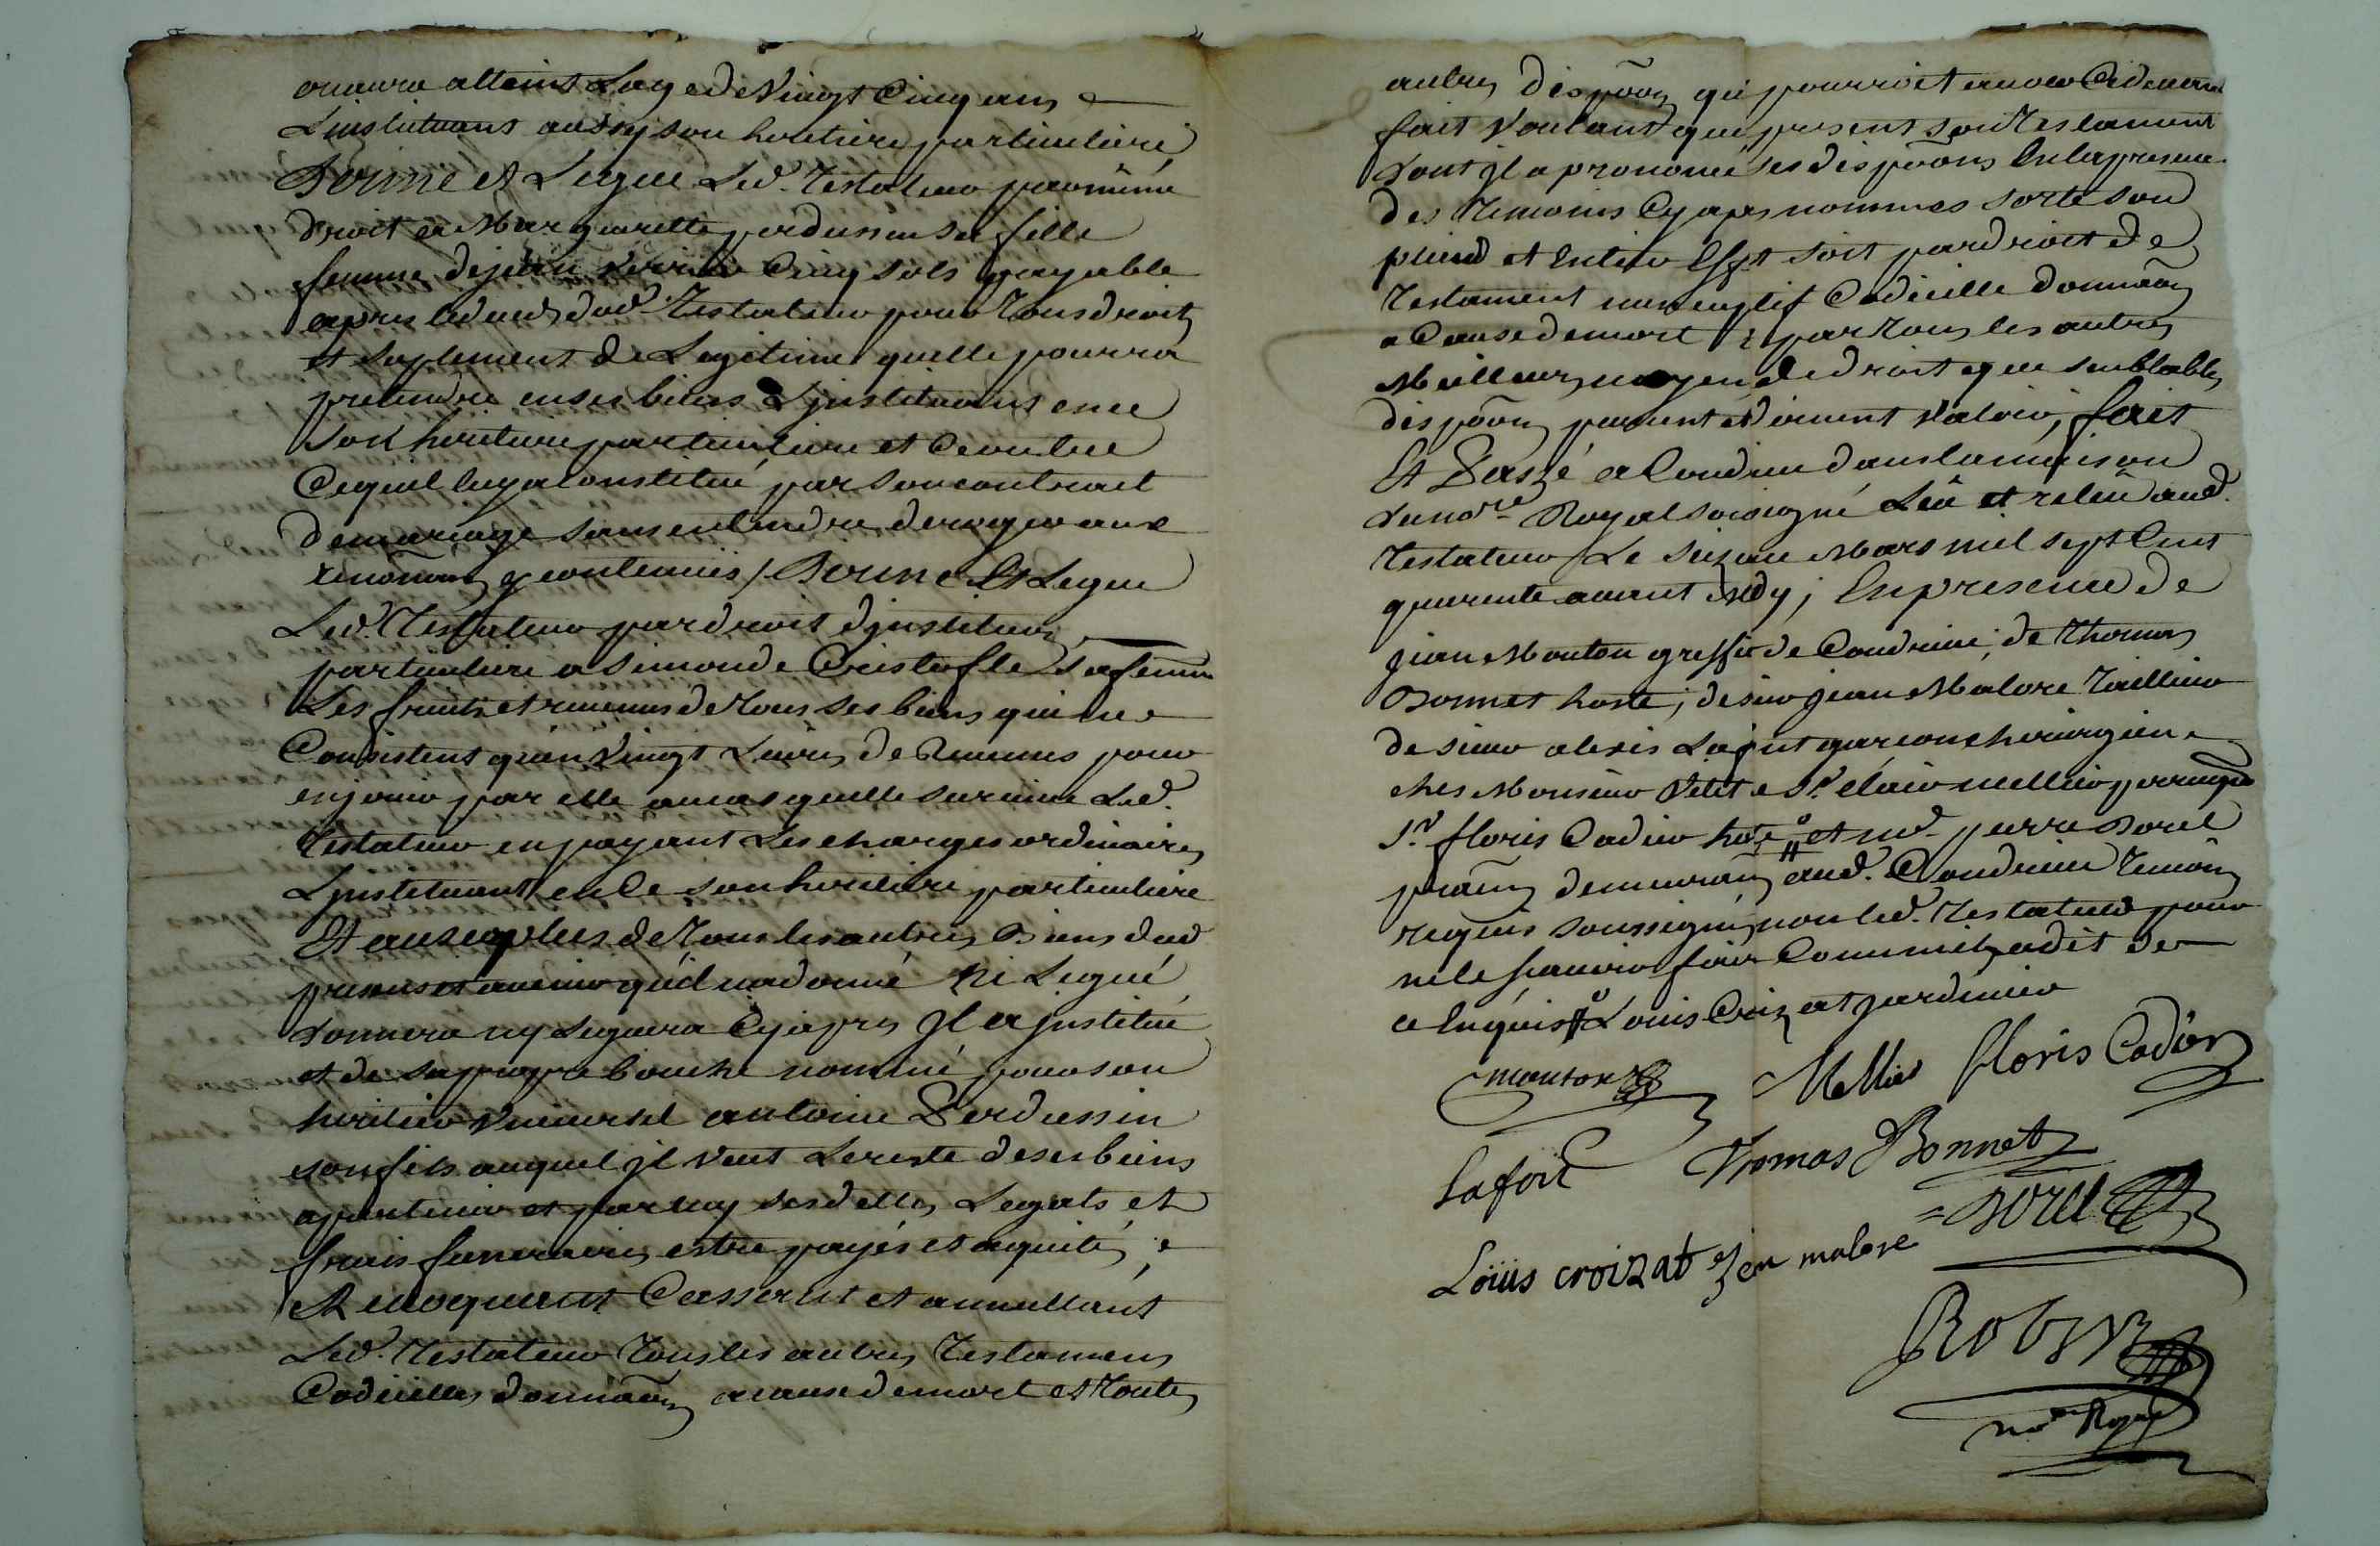 ou aura atteint Lage de Vingt Cinq ans
L'instituant aussy son heritiere particuliere
Donne et Legue Led. Testateur par meme
droit a Margueritte perdussin sa fille
femme de jean Cinq sols payable
apres le deces dud. Testateur pour Tous droits
et suplement de Legitime quelle pourra
pretendre en ses biens L'jnstituant en ce
son heritiere particuliere et ce outre
Ce quil luy a Constitué par son contract
de mariage sans entendre deroger aux
renonciaons y contenues / Donne Et Legue
Led. Testateur par droit d'jnstitution
particuliere a Simonde Cristofle sa femme
Les fruits et revenus de Tous ses biens qui ne
Consistent qu'en Vingt Livres de Revenus pour
en jouir par elle au cas quelle survive Led.
Testateur en payant Les charges ordinaires
L'jnstituant en Ce son heritiere particuliere
Et au surplus de Tous les autres Biens dud
presens et avenir qu'il n'a donné ni Legué
donnera ny Leguera Cy apres Jl a jnstitué
et de sa propre bouche nommé pour son
heritier Universel antoine Perdussin
son fils auquel jl veut Le reste de ses biens
apartenir et par luy ses dettes Legats et
frais funeraires estre payés et aquités,
Revoquant Cassant et annullant
Led. Testateur Tous les autres Testamens
Codicilles donnaons a cause de mort et Toutes
autres dispoons qu'il pourroit avoir Cidevant
fait Voulant que present son Testament
dont jl a prononcé ses dispoons En la presence
des Temoins Cy apres nommes sorte son
plein et Entier Effet soit par droit de
Testament nuncupatif Codicille donnaon
a Cause de mort & par Tous les autres
Meilleurs moyens de droit que semblables
dispoons peuvent et doivent Valoir, fait
Et Passé a Condrieu dans la maison
du nore. Royal soussigné Leu et releu aud.
Testateur Le seize Mars mil sept Cent
quarente avant Midy; En presence de
jean Mouton greffier de Condrieu, de Thomas
Bonnet hoste, de sieur jean Malore Tailleur
de sieur alexis Lafont garcon chirurgien
ches Monsieur Petit Sr. mellier perruquier
Sr. floris Cadier hote # et me. pierre Borel
demeurans aud. Condrieu Temoins
requis soussignes non led. Testateur pour
ne le scavoir faire Comme jl a dit de
ce Enquis # Louis Croizat jardinier
mouton Mellier floris Cadier
Lafont Thomas Bonnet
Borel
Loüis croizat jean malore
Robin
nore Royal